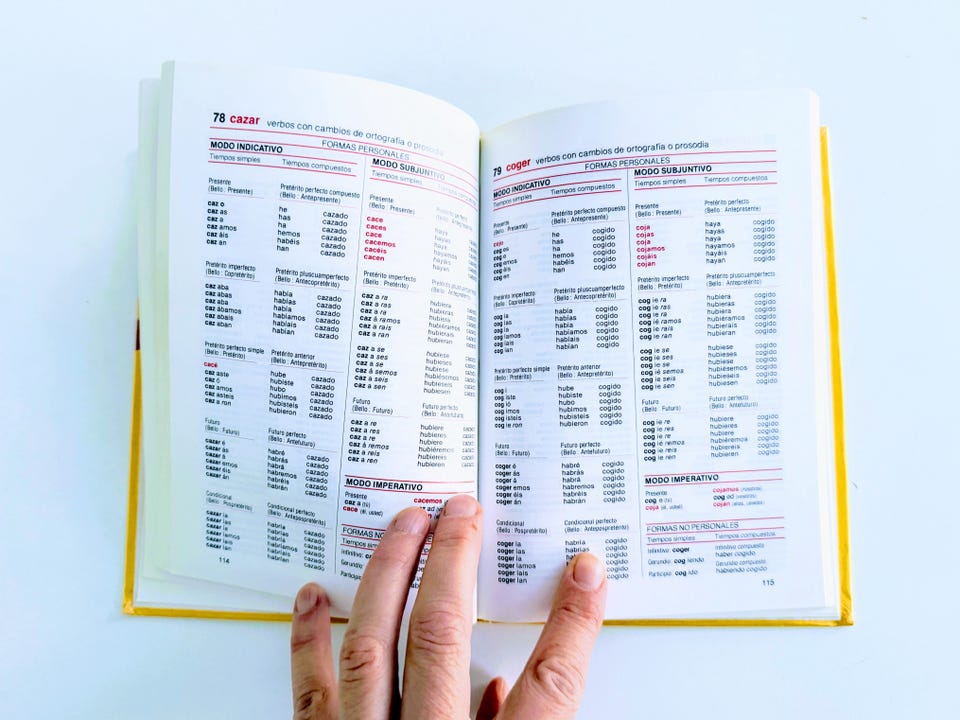 78 cazar verbos con cambios de ortografía o prosodia
FORMAS PERSONALES
MODO INDICATIVO
Tiempos simples Tiempos compuestos
Presente Pretérito perfecto compuesto
(Bello : Presente) (Bello : Antepresente)
caz o he cazado
caz as has cazado
caz a ha cazado
caz amos hemos cazado
caz áis habéis cazado
caz an han cazado
Pretérito imperfecto Pretérito pluscuamperfecto
(Bello : Copretérito) (Bello : Antecopretérito)
caz aba había cazado
caz abas habías cazado
caz aba había cazado
caz ábamos habíamos cazado
caz abais habíais cazado
caz aban habían cazado
Pretérito perfecto simple Pretérito anterior
(Bello : Pretérito) (Bello : Antepretérito)
cacé hube cazado
caz aste hubiste cazado
caz ó hubo cazado
caz amos hubimos cazado
caz asteis hubisteis cazado
caz a ron hubieron cazado
Futuro Futuro perfecto
(Bello : Futuro) (Bello : Antefuturo)
cazar é habré cazado
cazar ás habrás cazado
cazar á habrá cazado
cazar emos habremos cazado
cazar éis habréis cazado
cazar án habrán cazado
Condicional Condicional perfecto
(Bello : Pospretérito) (Bello : Antepospretérito)
cazar ía habría cazado
cazar ías habrías cazado
cazar ía habría cazado
cazar íamos habríamos cazado
cazar íais habríais cazado
cazar ían habrían cazado
114
MODO SUBJUNTIVO
Tiempos simples Tiempos compuestos
Presente Pretérito perfecto
(Bello : Presente) (Bello : Antepresente)
cace haya
caces hayas
cace haya
cacemos hayamos
cacéis hayáis
cacen hayan
Pretérito imperfecto Pretérito
(Bello : Pretérito) (Bello :
caz a ra hubiera
caz a ras hubieras
caz a ra hubiera
caz á ramos hubiéramos
caz a rais hubierais
caz a ran hubieran
caz a se hubiese
caz a ses hubieses
caz a se hubiese
caz á semos hubiésemos
caz a seis hubieseis
caz a sen hubiesen
Futuro Futuro perfecto
(Bello : Futuro) (Bello : Antefuturo)
caz a re hubiere
caz a res hubieres
caz a re hubiere
caz á remos hubiéremos
caz a reis hubiereis
caz a ren hubieren
MODO IMPERATIVO
Presente cacemos
caz a (tú)
cace (él, usted)
FORMAS NO
Tiempos simples
Infinitivo:
Gerundio:
Participio:
79 coger verbos con cambios de ortografía o prosodia
FORMAS PERSONALES
MODO INDICATIVO
Tiempos simples Tiempos compuestos
Presente Pretérito perfecto compuesto
(Bello : Presente) (Bello : Antepresente)
cojo he cogido
cog es has cogido
cog e ha cogido
cog emos hemos cogido
cog éis habéis cogido
cog en han cogido
Pretérito imperfecto Pretérito pluscuamperfecto
(Bello : Copretérito) (Bello : Antecopretérito)
cog ía había cogido
cog ías habías cogido
cog ía había cogido
cog íamos habíamos cogido
cog íais habíais cogido
cog ían habían cogido
Pretérito perfecto simple Pretérito anterior
(Bello : Pretérito) (Bello : Antepretérito)
cog í hube cogido
cog iste hubiste cogido
cog ió hubo cogido
cog imos hubimos cogido
cog isteis hubisteis cogido
cog ie ron hubieron cogido
Futuro Futuro perfecto
(Bello : Futuro) (Bello : Antefuturo)
coger é habré cogido
coger ás habrás cogido
coger á habrá cogido
coger emos habremos cogido
coger éis habréis cogido
coger án habrán cogido
Condicional Condicional perfecto
(Bello : Pospretérito) (Bello : Antepospretérito)
coger ía habría cogido
coger ías habrías cogido
coger ía cogido
coger íamos cogido
coger íais cogido
coger ían cogido
MODO SUBJUNTIVO
Tiempos simples Tiempos compuestos
Presente Pretérito perfecto
(Bello : Presente) (Bello : Antepresente)
coja haya cogido
cojas hayas cogido
coja haya cogido
cojamos hayamos cogido
cojáis hayáis cogido
cojan hayan cogido
Pretérito imperfecto Pretérito pluscuamperfecto
(Bello : Pretérito) (Bello : Antepretérito)
cog ie ra hubiera cogido
cog ie ras hubieras cogido
cog ie ra hubiera cogido
cog ié ramos hubiéramos cogido
cog ie rais hubierais cogido
cog ie ran hubieran cogido
cog ie se hubiese cogido
cog ie ses hubieses cogido
cog ie se hubiese cogido
cog ié semos hubiésemos cogido
cog ie seis hubieseis cogido
cog ie sen hubiesen cogido
Futuro Futuro perfecto
(Bello : Futuro) (Bello : Antefuturo)
cog ie re hubiere cogido
cog ie res hubieres cogido
cog ie re hubiere cogido
cog ié remos hubiéremos cogido
cog ie reis hubiereis cogido
cog ie ren hubieren cogido
MODO IMPERATIVO
Presente cojamos (nosotros)
cog e (tú) cog ed (vosotros)
coja (él, usted) cojan (ellos, ustedes)
FORMAS NO PERSONALES
Tiempos simples Tiempos compuestos
Infinitivo: coger Infinitivo compuesto: haber cogido
Gerundio: cog iendo Gerundio compuesto: habiendo cogido
Participio: cog ido
115